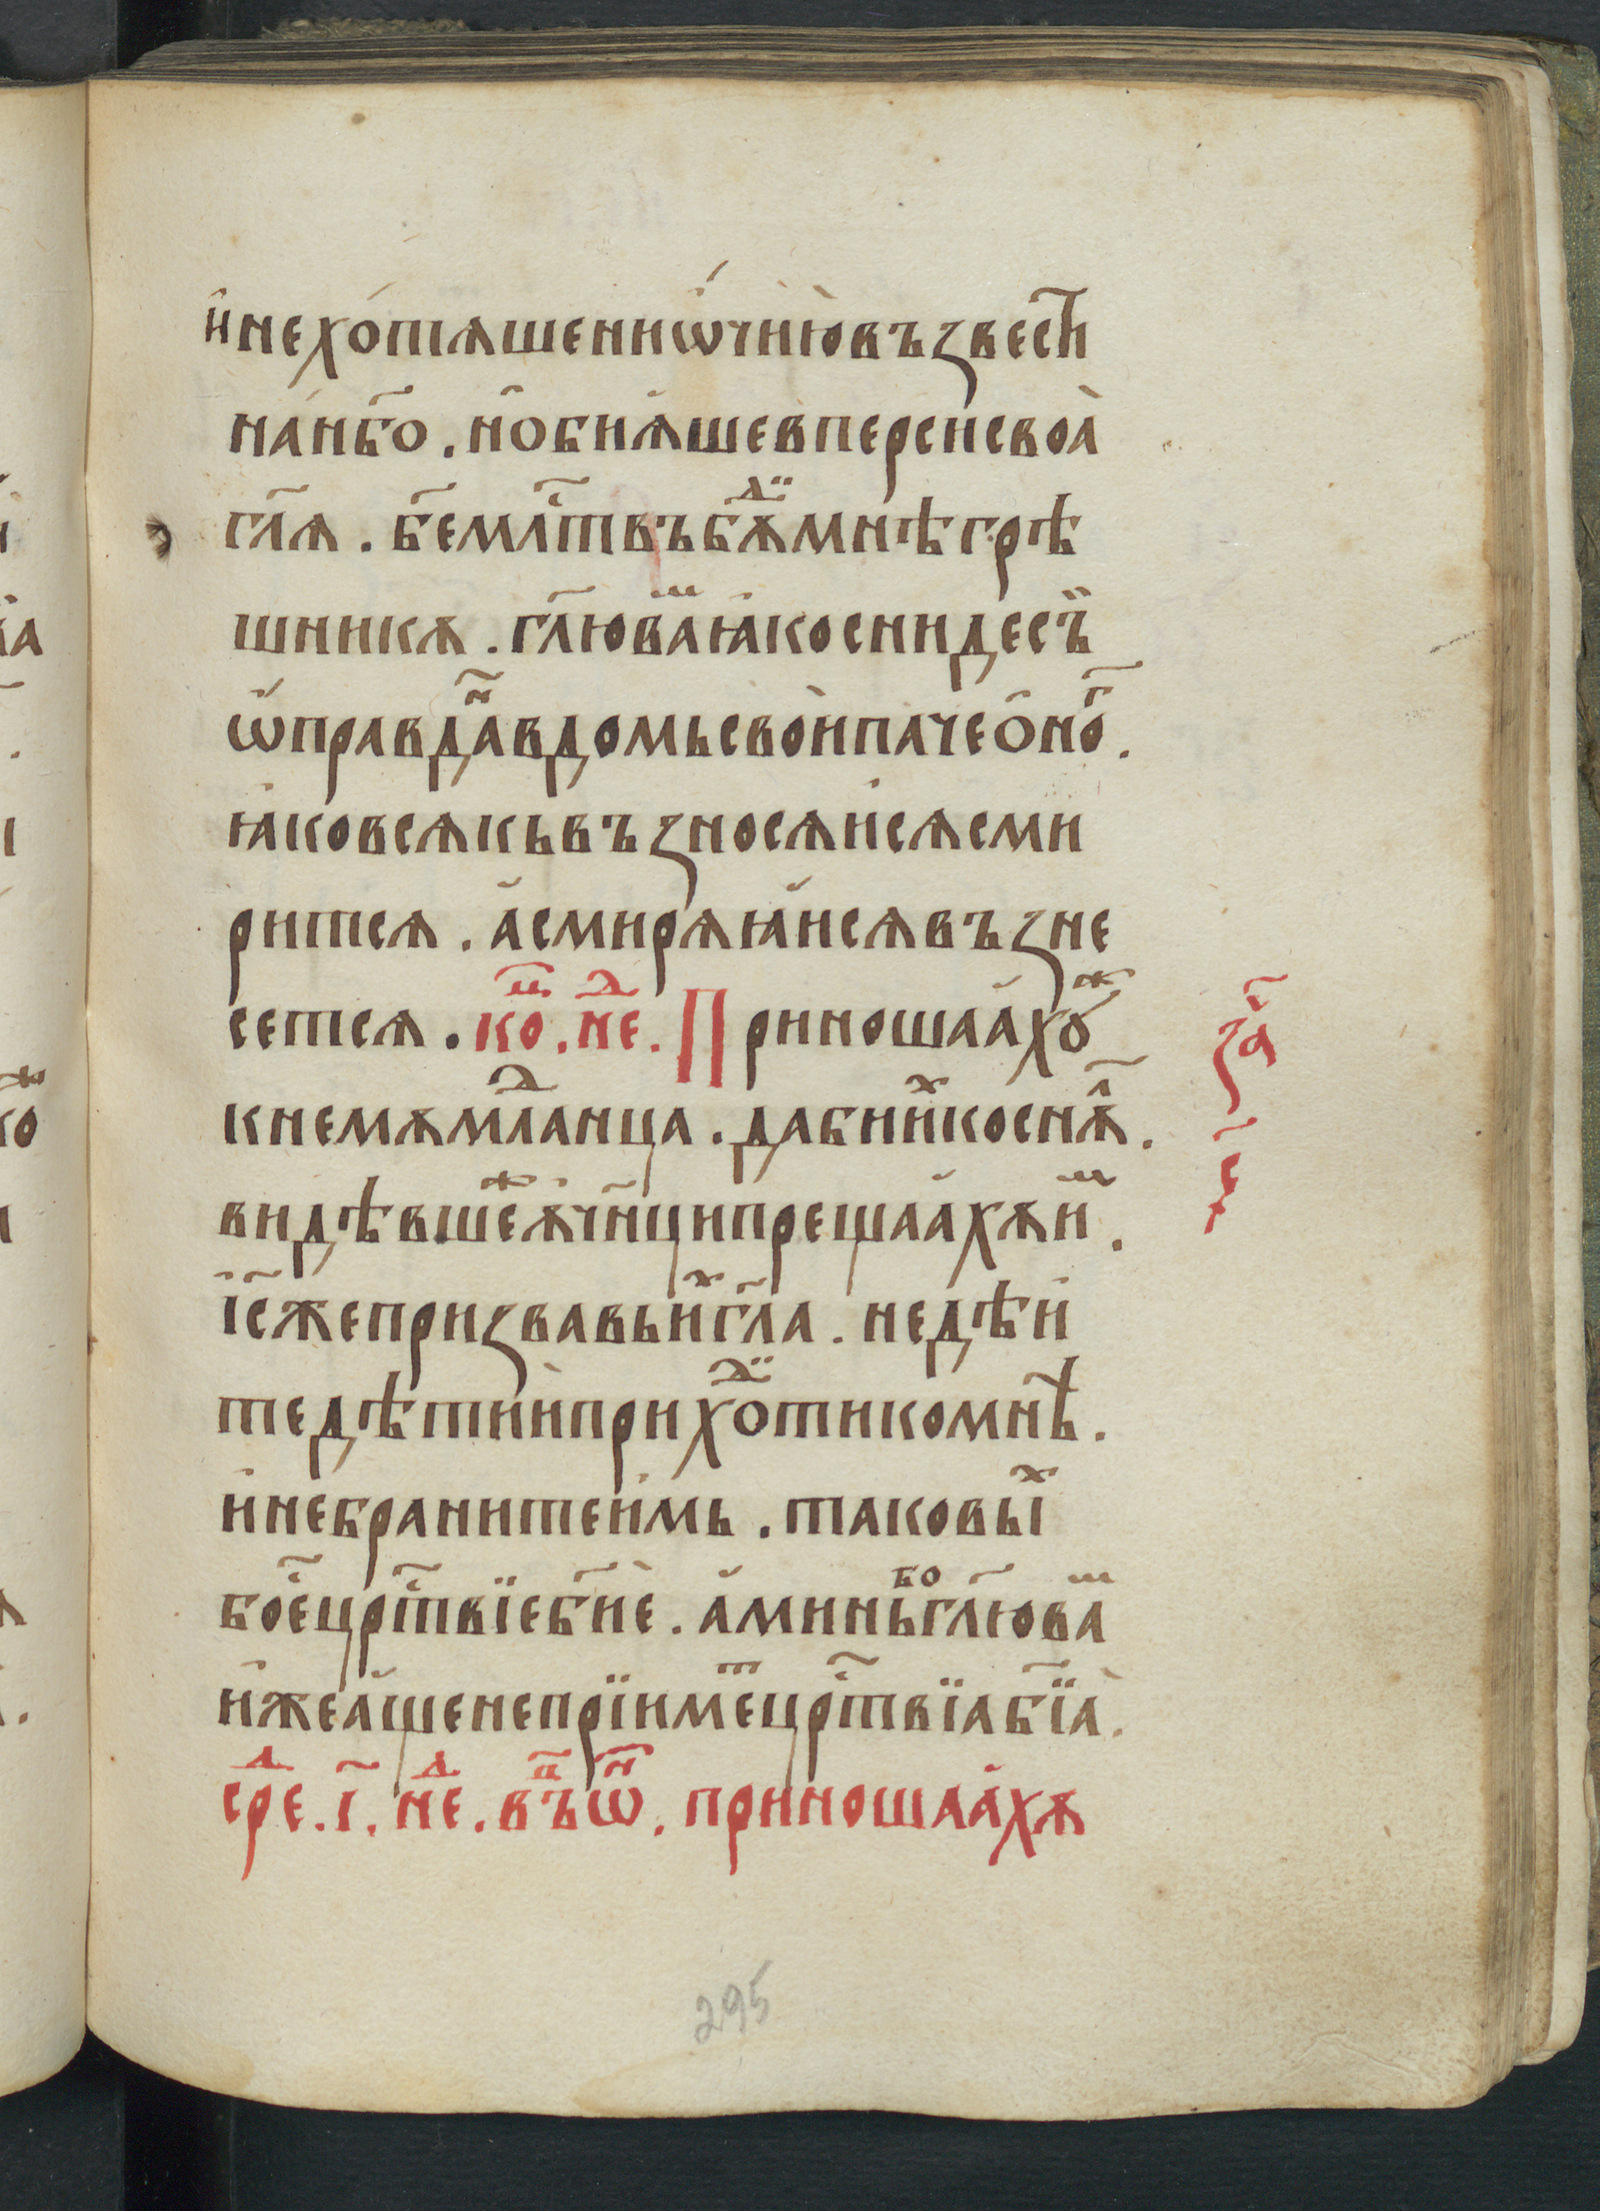 и҆ не хо́тѧше ни ѡ҆́чию в̾ъзвести
на́ нб҃о . но̑ бїꙗ̑ше в пе́рси своѧ̀
гл҃ѧ . бж҃е млⷭ҇твъ бꙋ́дїи мнѣ грѣ
шникꙋ . гл҃ю ваⷨ ꙗ҆ко сниде съ́и
ѡ҆правдаⷩ҇ в домь сво̀и паче о҆ноⷢ҇ .
ꙗ҆ко всѧкь възносѧ́исѧ сми
ритсѧ . а҆ смирѧꙗ́исѧ възне
сетсѧ . коⷰ҇ . неⷣ . Приношаа́хꙋⷤ
к немꙋ млⷣанца . да би и҆ⷯ коснꙋⷧ҇ .
видѣвшеⷤ ѧ҆ чн҃ци прещаа́хꙋ и҆ⷨ .
і҆с҃же призвавь и҆ⷯ гл҃а . не дѣи
те дѣти̇и прихоⷣити ко мнѣ̀ .
и҆ не браните и҆мь . таковыⷯ
бо е҆ⷭ҇ црⷭ҇твїе бж҃иѐ . а҆минь бо гл҃ю ваⷨ
и҆же а҆ще не прїимеⷮ црⷭ҇твїа бж҃їа̀ .
среⷣ . і҃ . неⷣ . въ пⷩ҇ѡ . приношаа́хꙋ
заⷱ҇
ч҃є
295